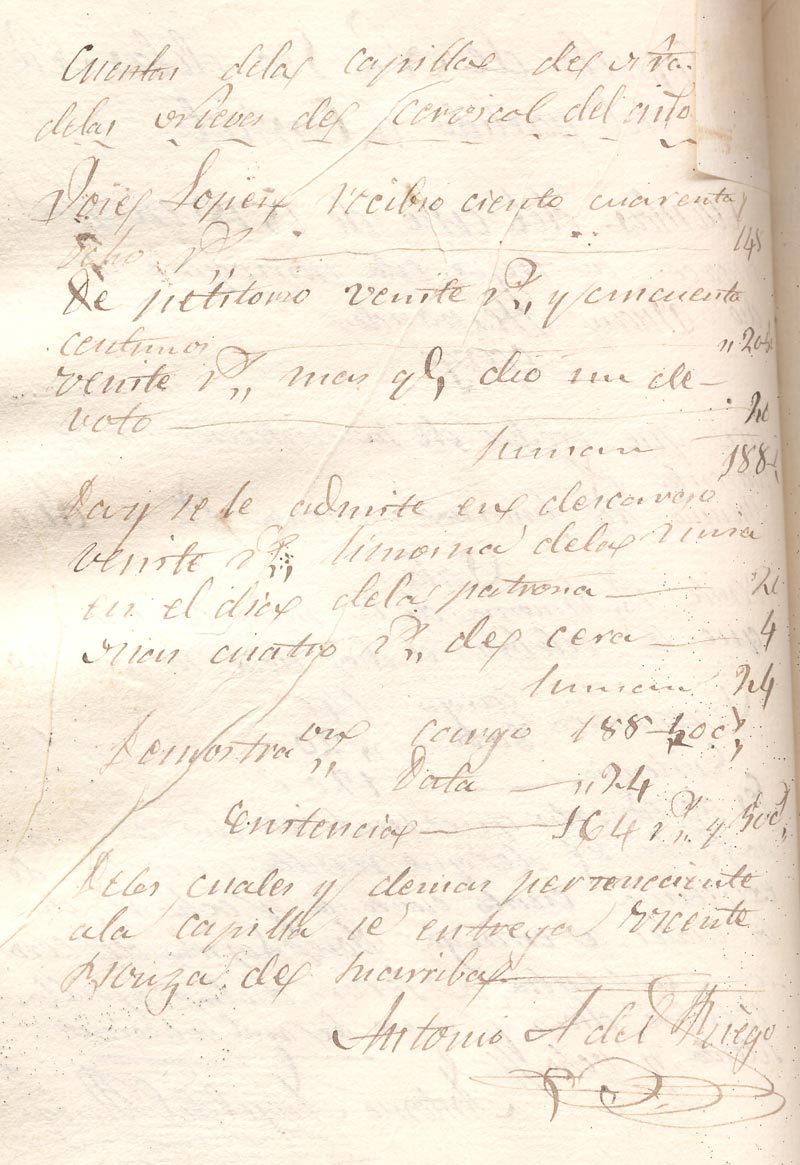 Cuentas de la capilla de Ntra
de las Nieves del Carvicol del
José Lopez recibio ciento cuarenta y
ocho rs 148
De petitorio veinte rs y cincuenta
centimos 20
veinte rs mas q dio un de-
voto 20
suman 188
Da y se le admite en descargo
veinte rs limosna de la misa
en el dia de la patrona 20
mas cuatro rs de cera 4
suman 24
Demostraon cargo 188-50c
Data 24
Existencia 164 rs y 50c
De los cuales y demas pertenenciente
a la capilla se entrega Vicente
Souza de
Antonio A del Riego